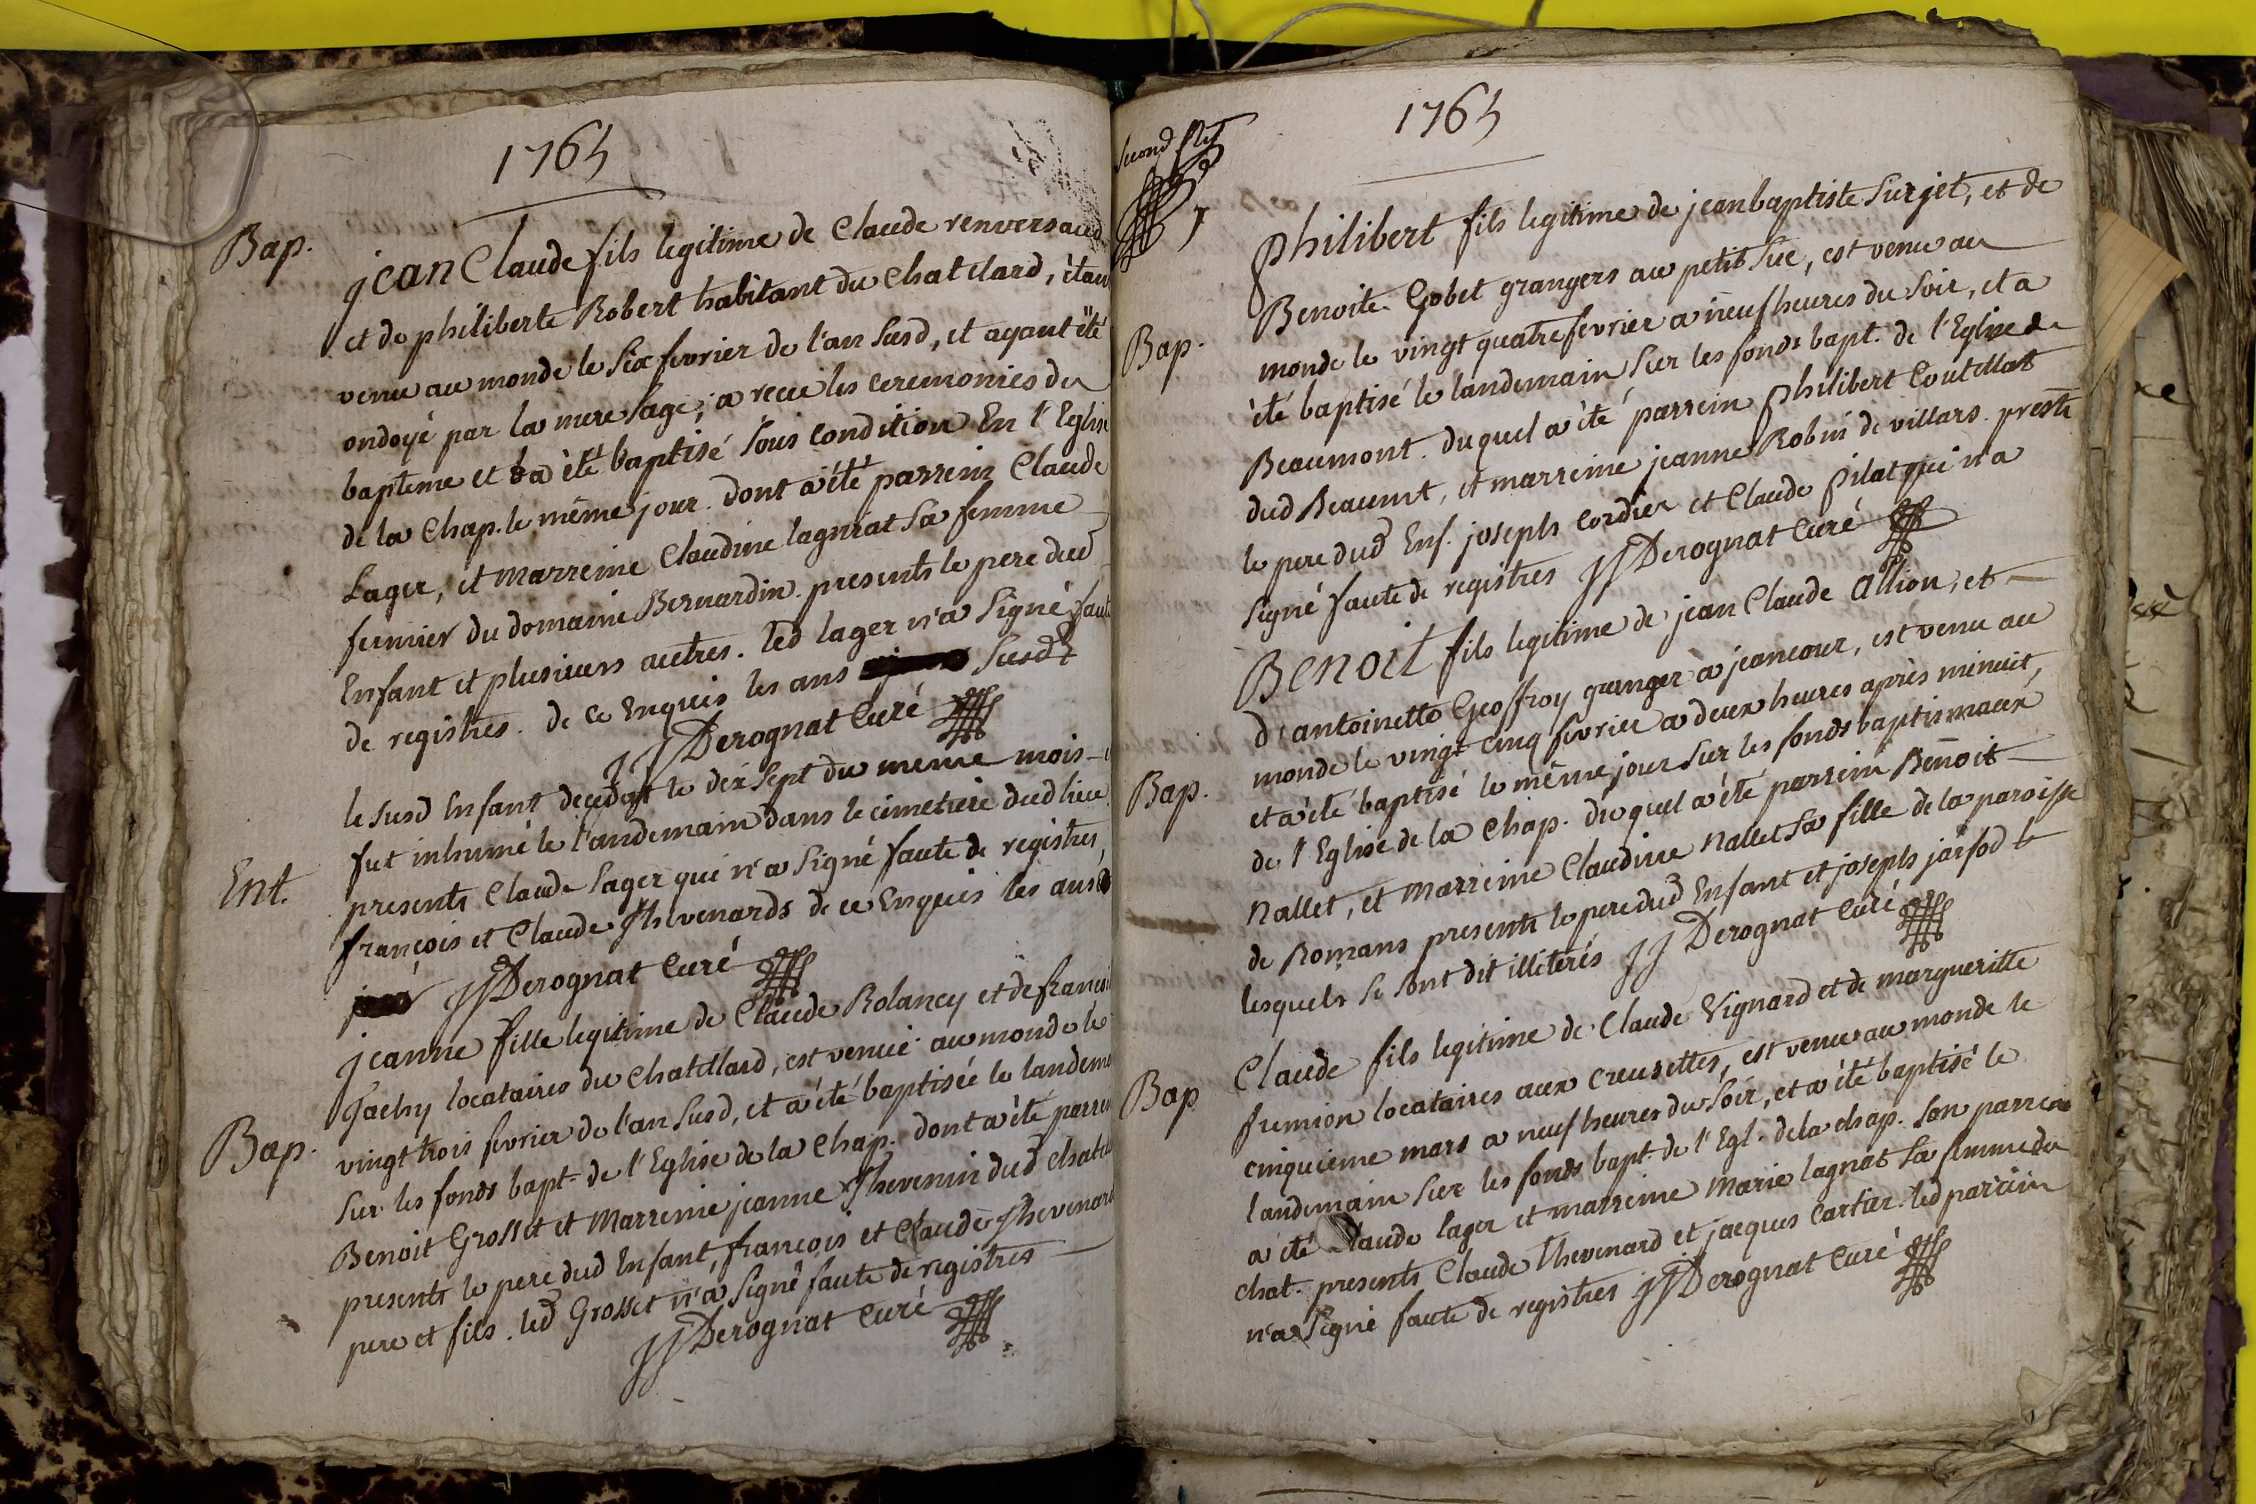 1765
Bap.
jean Claude fils legitime de Claude renversaud
et de philiberte Robert habitant du Chatelard, étan
venu au monde le Six fevrier de l'an susd, et ayant été
ondoyé par la mere sage, a reçu les ceremonies du
bapteme et a été baptisé sous condition En l'Eglise
de la Chap. le même jour. dont a été parrein Claude
Lager, et marreine Claudine lagniat sa femme
fermier du domaine Bernardin. presents le pere dud
Enfant et plusieurs autres. led lager n'a signé faute
de registres. de ce enquis les ans susd
JJ Derognat Curé
Ent.
le susd Enfant deceda le dix sept du meme mois
fut inhumé le l'andemain dans le cimetiere dud lieu
presents Claude Lager qui n'a signé faute de registres
françois et Claude Thevenards de ce enquis les an susd
JJ Derognat Curé
Bap.
jeanne fille legitime de Claude Rolancy et de francoi
Tachy locataires du Chatellard, est venüe au monde le
vingt trois fevrier de l'an susd, et a été baptisée le landem
sur les fonds bapt. de l'Eglise de la Chap. dont a été parrei
Benoit Grosset et Marreine jeanne Thevenin dud chatel
presents le pere dud Enfant, françois et Claude Thevenard
pere et fils. led Grosset n'a signé faute de registres
JJ Derognat Curé
1765
second
Bap.
Philibert fils legitime de jean baptiste Surjet, et de
Benoite Gobet grangers au petit Sue, est venu au
monde le vingt quatre fevrier a neuf heures du soir, et a
été baptisé le landemain sur les fonds bapt. de l'Eglise de
Beaumont. duquel a été parrein Philibert Coutellat
dud Beaumt, et marreine jeanne Robin de villars. prests
le pere dud Enf. joseph Cordier et Claude Pilat qui n'a
signé faute de registres JJ Derognat Curé
Bap.
Benoit fils legitime de jean Claude Allion, et
d'antoinette Geoffroy granger a jeancour, est venu au
monde le vingt cinq fevrier a deux heures après minuit,
et a été baptisé le même jour sur les fonds baptismaux
de l'Eglise de la Chap. duquel a été parrein Benoit
Nallet, et Marreine Claudine Nallet sa fille de la paroisse
de Romans presents le pere dud Enfant et joseph
lesquels se sont dit illiterés JJ Derognat Curé
Bap
Claude fils legitime de Claude Vignard et de margueritte
fremion locataires aux creusettes, est venu au monde le
cinquieme mars a neuf heures du soir, et a été baptisé le
landemain sur les fonds bapt. de l'Egl. de la chap. son parrein
a été Claude lager et marreine Marie lagnat sa femme du
chat. presents Claude Thevenard et jacques Cartier. led parrein
n'a signé faute de registres JJ Derognat Curé